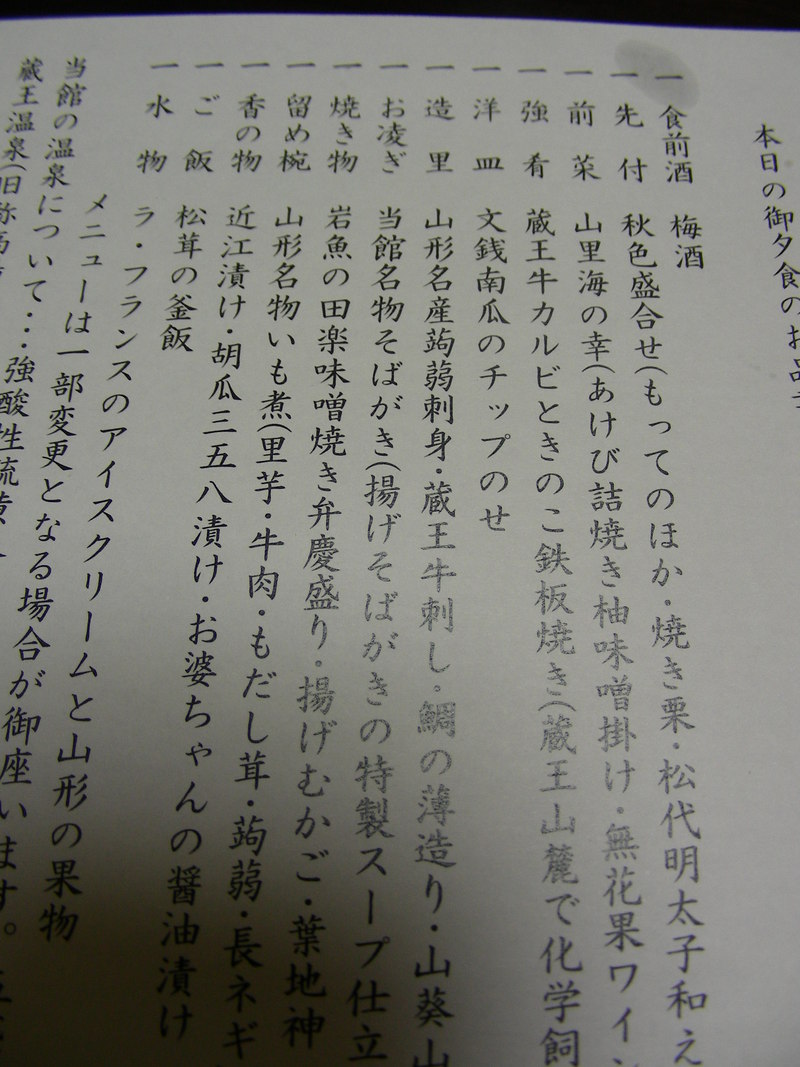 本日の御夕食のお品
一 食前酒 梅酒
一 先付 秋色盛合せ(もってのほか・焼き栗・松代明太子和え
一 前菜 山里海の幸(あけび詰焼き柚味噌掛け・無花果ワイン
一 強肴 蔵王牛カルビときのこ鉄板焼き(蔵王山麓で化学飼
一 洋皿 文銭南瓜のチップのせ
一 造里 山形名産蒟蒻刺身・蔵王牛刺し・鯛の薄造り・山葵山
一 お凌ぎ 当館名物そばがき(揚げそばがきの特製スープ仕立
一 焼き物 岩魚の田楽味噌焼き弁慶盛り・揚げむかご・葉地神
一 留め椀 山形名物いも煮(里芋・牛肉・もだし茸・蒟蒻・長ネギ
一 香の物 近江漬け・胡瓜三五八漬け・お婆ちゃんの醤油漬け
一 ご飯 松茸の釜飯
一 水物 ラ・フランスのアイスクリームと山形の果物
メニューは一部変更となる場合が御座います。
当館の温泉について・・・強酸性硫黄
蔵王温泉(旧